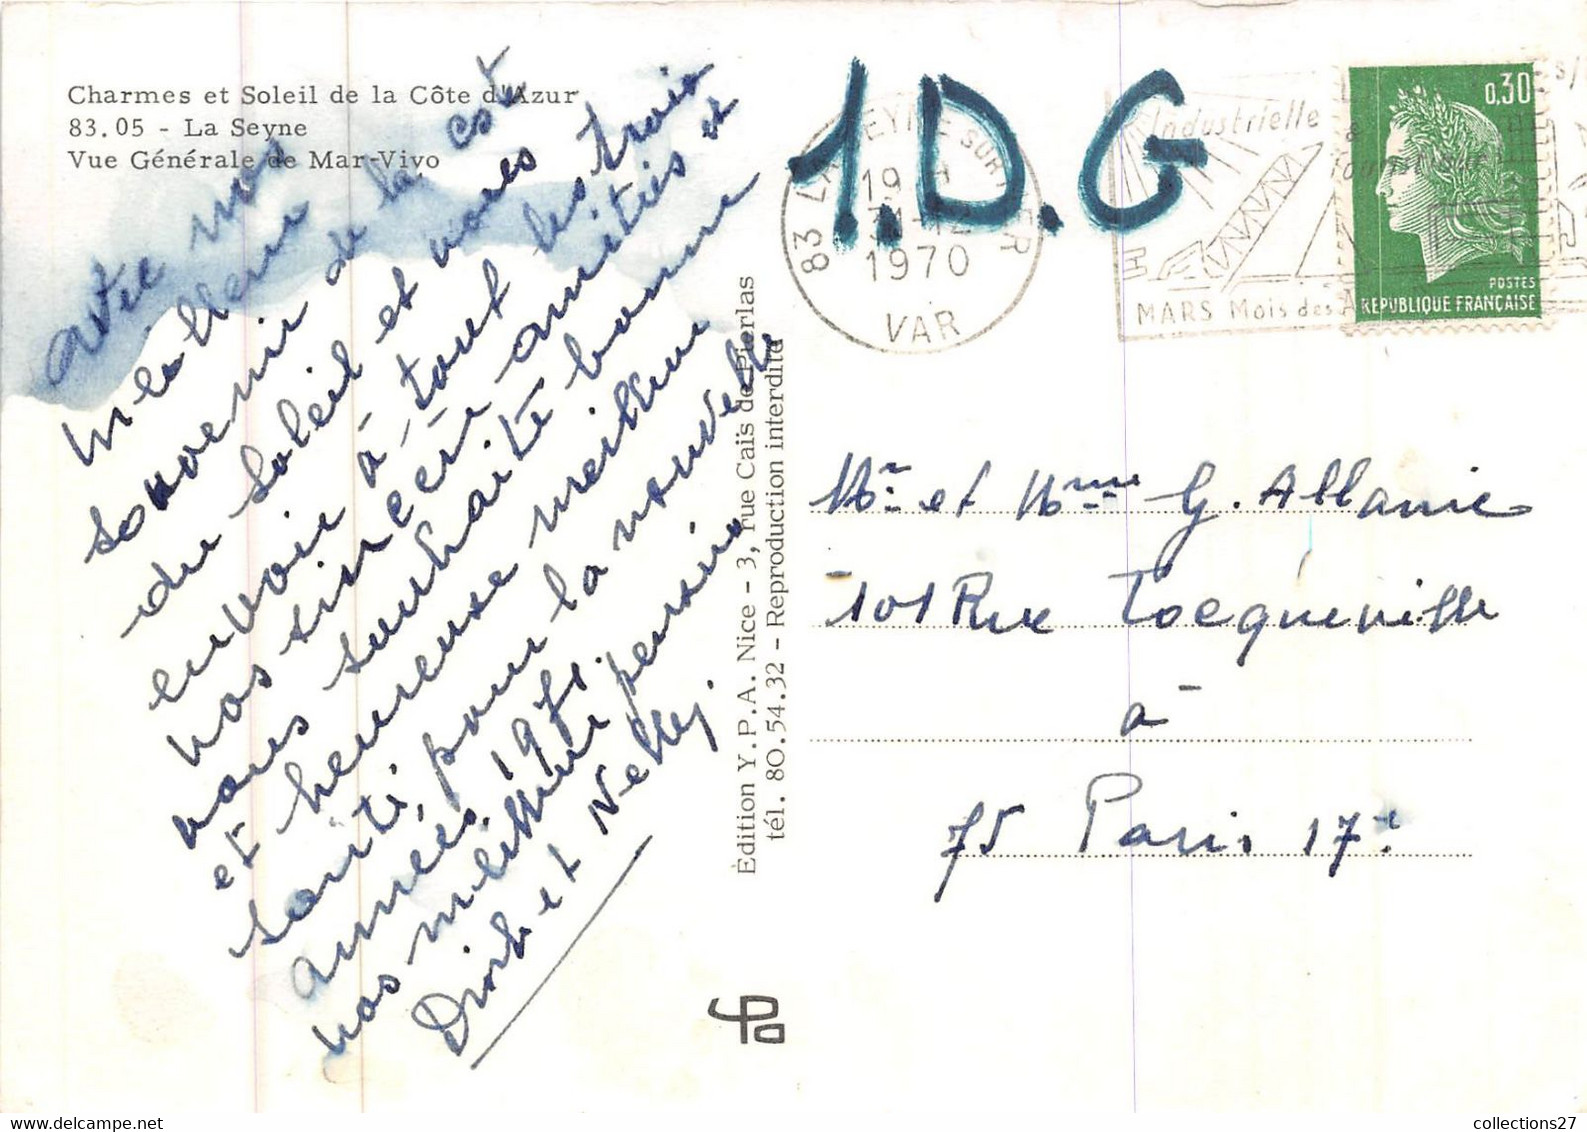 Charmes et Soleil de la Côte d'Azur
83.05 - La Seyne
Vue Générale de Mar-Vivo
avec nos
meilleur
souvenir de la
du soleil et nous
envoir à tout les trois
nos sincère amitiés et
vous souhaite bonne
et heureuse meilleur
santé, pour la nouvelle
années, 1971.
nos meilleur pensés
et Nelly
Édition Y.P.A. Nice - 3, rue Caïs de Pierlas
tél. 80.54.32 - Reproduction interdite
1.D.G
83 LA SEYNE SUR MER
19 H
31-12
1970
VAR
Industrielle
MARS Mois des
0,30
POSTES
REPUBLIQUE FRANÇAISE
Mr et Mme G. Allanic
101 Rue Tocqueville
à
75 Paris 17e
collections27